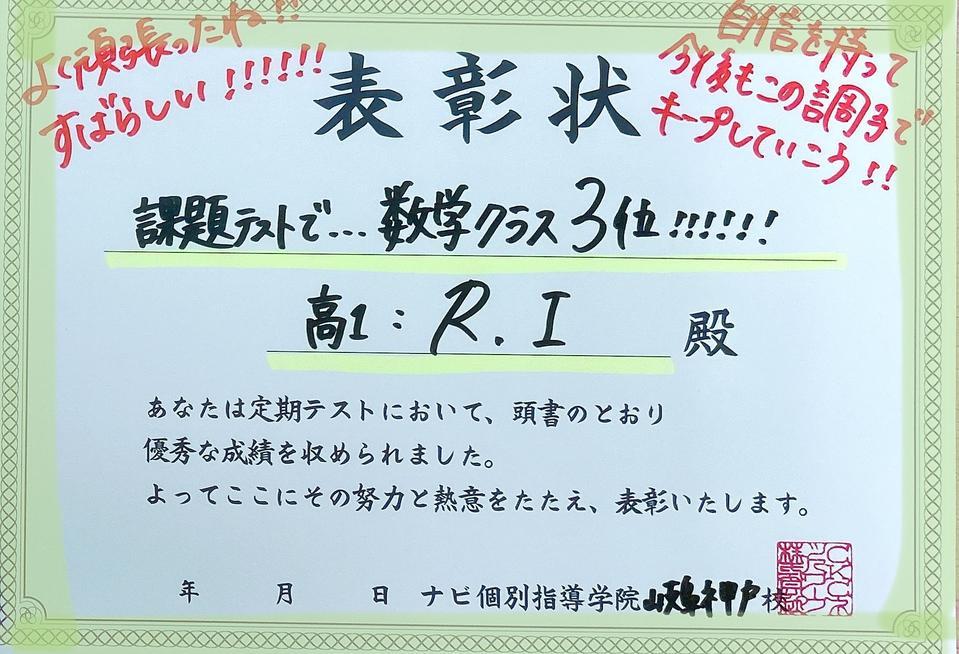 よく頑張ったね!!
すばらしい!!!!!!
自信を持って
今後もこの調子で
キープしていこう!!
表彰状
課題テストで...数学クラス3位!!!!!!
高1:R.I 殿
あなたは定期テストにおいて、頭書のとおり
優秀な成績を収められました。
よってここにその努力と熱意をたたえ、表彰いたします。
年 月 日 ナビ個別指導学院岐阜神戸校